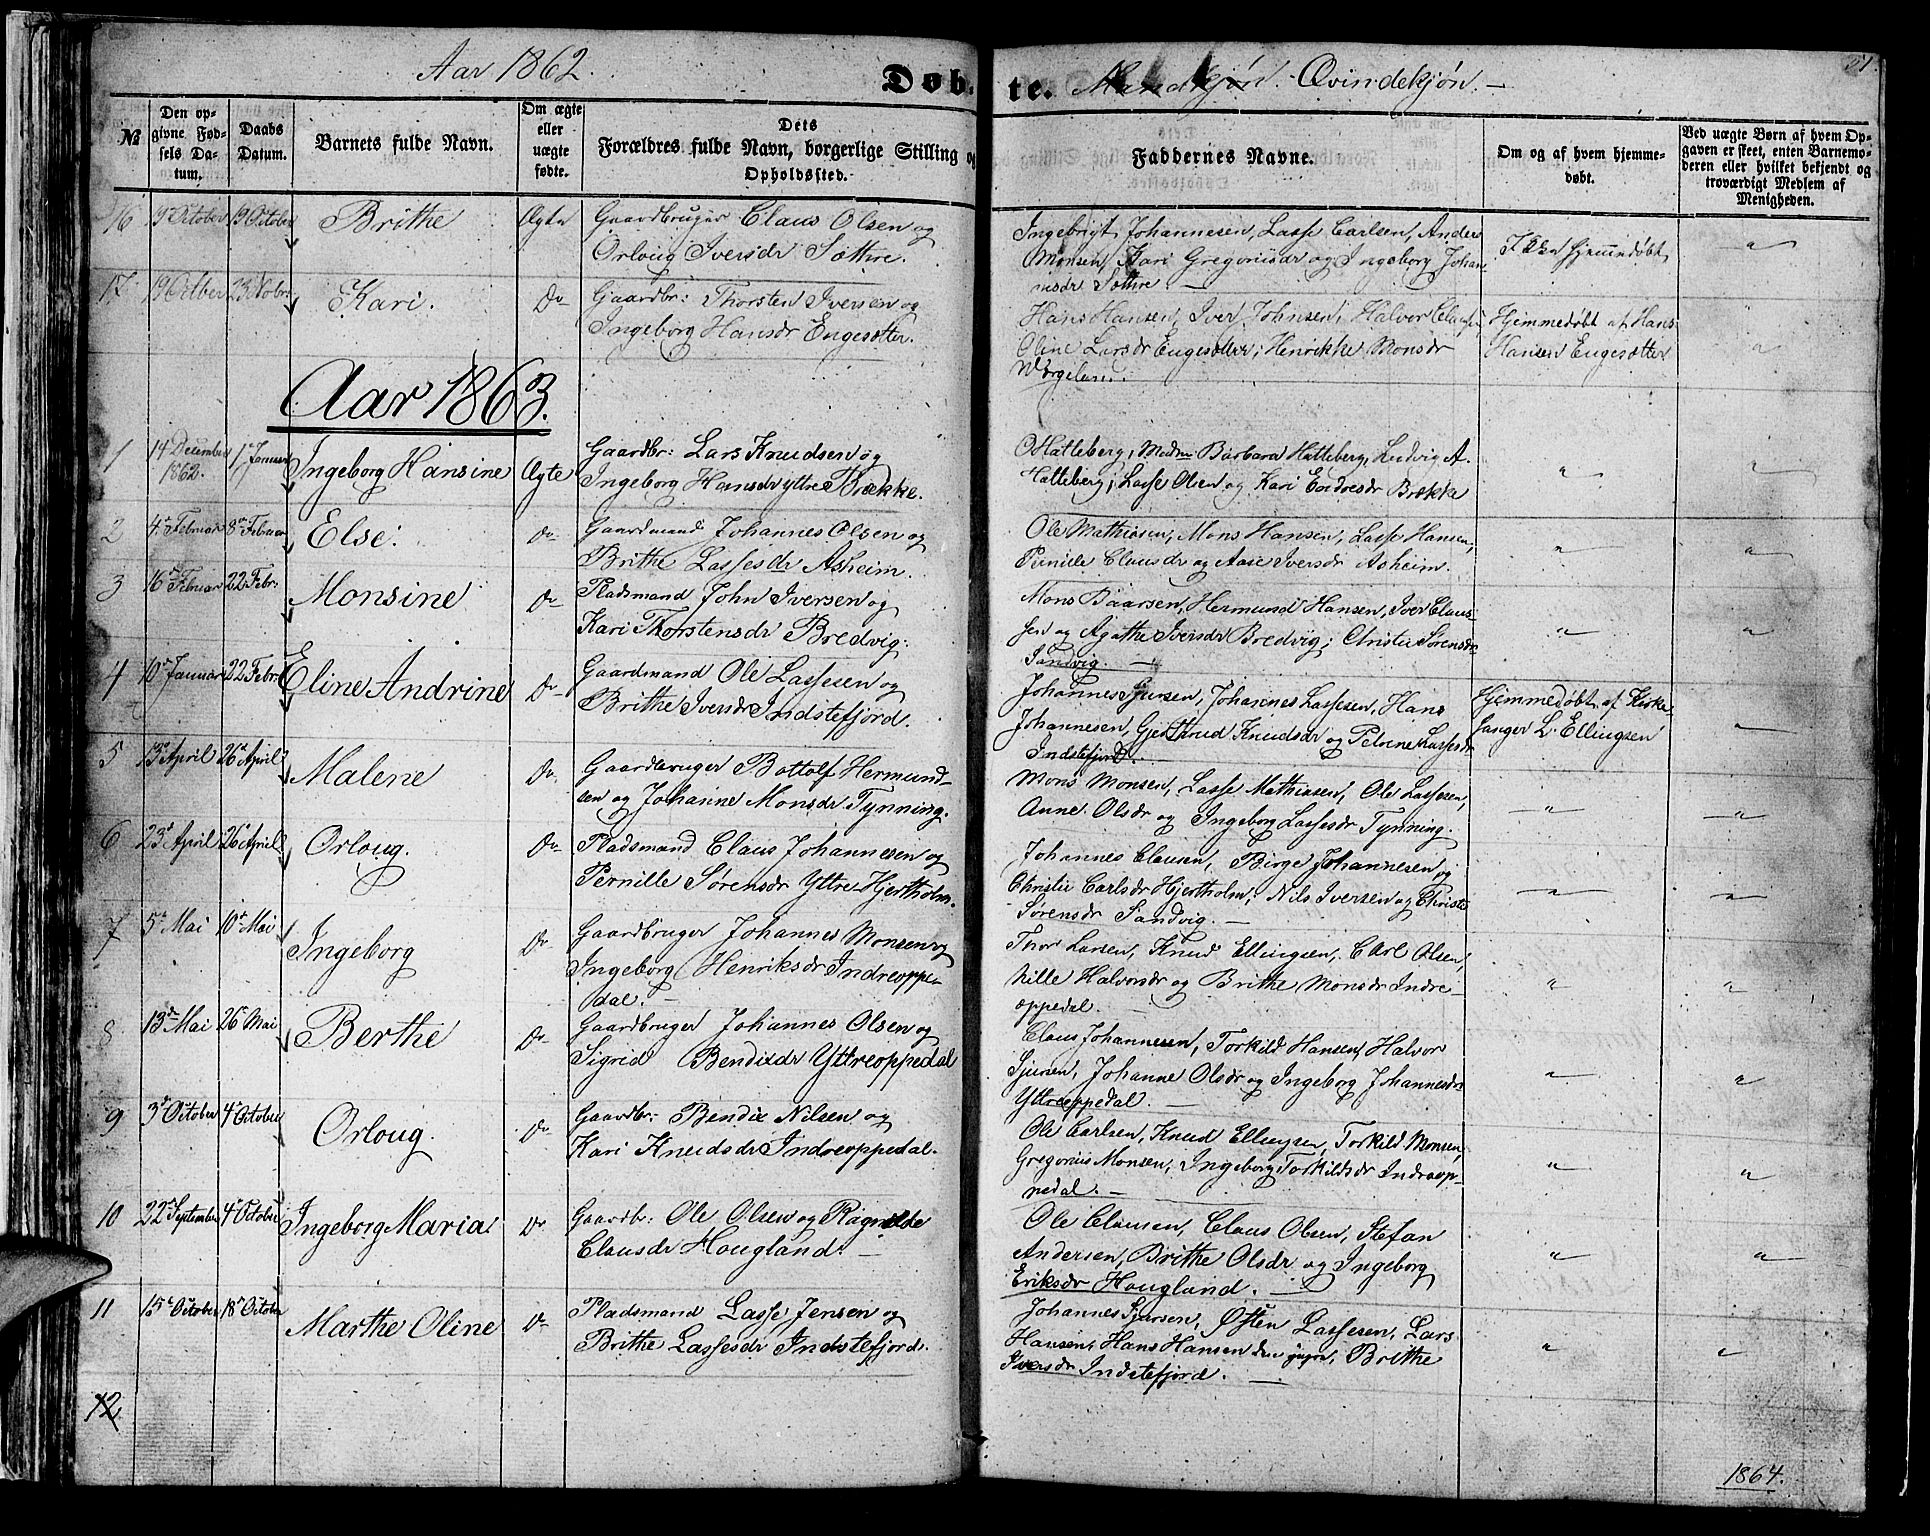 Aar 1862.
Døb-
te. Mandkjøn. Qvindekjøn. —
21.
№
Den op-
givne Fød-
sels Da-
tum.
Daabs
Datum.
Barnets fulde Navn.
Om ægte
eller
uægte
fødte.
Dets
Forældres fulde Navn, borgerlige Stilling og
Opholdssted.
Faddernes Navne.
Om og af hvem hjemme-
døbt.
Ved uægte Børn af hvem Op-
gaven er skeet, enten Barnemo-
deren eller hvilket bekjendt og
troværdigt Medlem af
Menigheden.
16 9 October 19 October Brithe Ægte Gaardbruger Claus Olsen og
Orloug Iversdr Søttre.
Ingebrigt Johannesen, Lasse Carlsen, Anders
Monsen, Kari Gregoriusdr og Ingeborg Johan-
nesdr Søttre. —
hjemmedøbt
17 19 Octber 23 Nobr: Kari. Do Gaardbr: Thorsten Iversen og
Ingeborg Hansdr Engesætter.
Hans Hansen, Iver Johnsen, Halvor Clausen,
Oline Larsdr Engesætter, Henrikke Monsdr
Hjemmedøbt af Hans
Hansen Engesætter
Aar 1863.
1 14 December
1862. 1 Januar Ingeborg Hansine Ægte Gaardbr: Lars Knudsen og
Ingeborg Hansdr ytre Brække.
O Hatleberg, Madm Barbara Hatleberg, Ludvig A.
Hatleberg, Lasse Olsen og Kari Endresdr Brække
2 4 Februar 8 Februar Else. Do Gaardmand Johannes Olsen og
Brithe Lassesdr Asheim.
Ole Mathiasen, Mons Hansen, Lasse Hansen,
Pernille Clausdr og Aase Iversdr Asheim.
3 16 Februar 22 Febr: Monsine Do Pladsmand John Iversen og
Kari Thorstensdr Bredvig.
Mons Baarsen, Hermund Hansen, Iver Claus-
sen og Agathe Iversdr Bredvig, Christie Sørensdr
Sandvig. —
4 10 Januar 22 Febr: Eline Andrine Do Gaardmand Ole Lassesen og
Brithe Iversdr Indstefjord.
Johannes Sjursen, Johannes Lassesen, Hans
Johannesen, Gjertrud Knudsdr og Petrine Lassesdr
Indstefjord.
Hjemmedøbt af Kirke-
sanger L. Ellingsen
5 13 April 26 April Malene Do Gaardbruger Bottolf Hermund-
sen og Johanne Monsdr Tynning.
Mons Monsen, Lasse Mathiasen, Ole Lassesen,
Anne Olsdr og Ingeborg Lassesdr Tynning.
6 23 April 26 April Orloug. Do Pladsmand Claus Johannesen og
Pernille Sørensdr Yttre Hjertholm.
Johannes Clausen, Birge Johannesen og
Christie Carlsdr Hjertholm, Nils Iversen og Christi
Sørensdr Sandvig. —
7 5 Mai 10 Mai Ingeborg Do Gaardbruger Johannes Monsen og
Ingeborg Henriksdr Indreoppe-
dal. —
Thor Larsen, Knud Ellingsen, Carl Olsen,
Nille Halvorsdr og Brithe Monsdr Indre-
oppedal.
8 13 Mai 26 Mai Berthe Do Gaardbruger Johannes Olsen og
Sigrid Bendixdr Yttreoppedal
Claus Johannesen, Torkild Hansen, Halvor
Sjursen, Johanne Olsdr og Ingeborg Johannesdr
Yttreoppedal. —
9 3 October 4 October Orloug. Do Gaardbr: Bendix Nilsen og
Kari Knudsdr Indreoppedal.
Ole Carlsen, Knud Ellingsen, Torkild Monsen,
Gregorius Monsen, Ingeborg Torkildsdr Indreop-
pedal. —
10 22 September 4 October Ingeborg Maria Do Gaardbr: Ole Olsen og Ragnilde
Clausdr Hougland. —
Ole Clausen, Claus Olsen, Stefan
Andersen, Brithe Olsdr og Ingeborg
Eriksdr Hougland. —
11 15 October 18 October Marthe Oline Do Pladsmand Lasse Jensen og
Brithe Lassesdr Indstefjord.
Johannes Sjursen, Østen Lassesen, Lars
Hansen, Hans Hansen den yngre, Brithe
Iversdr Indstefjord. —
12
1864.